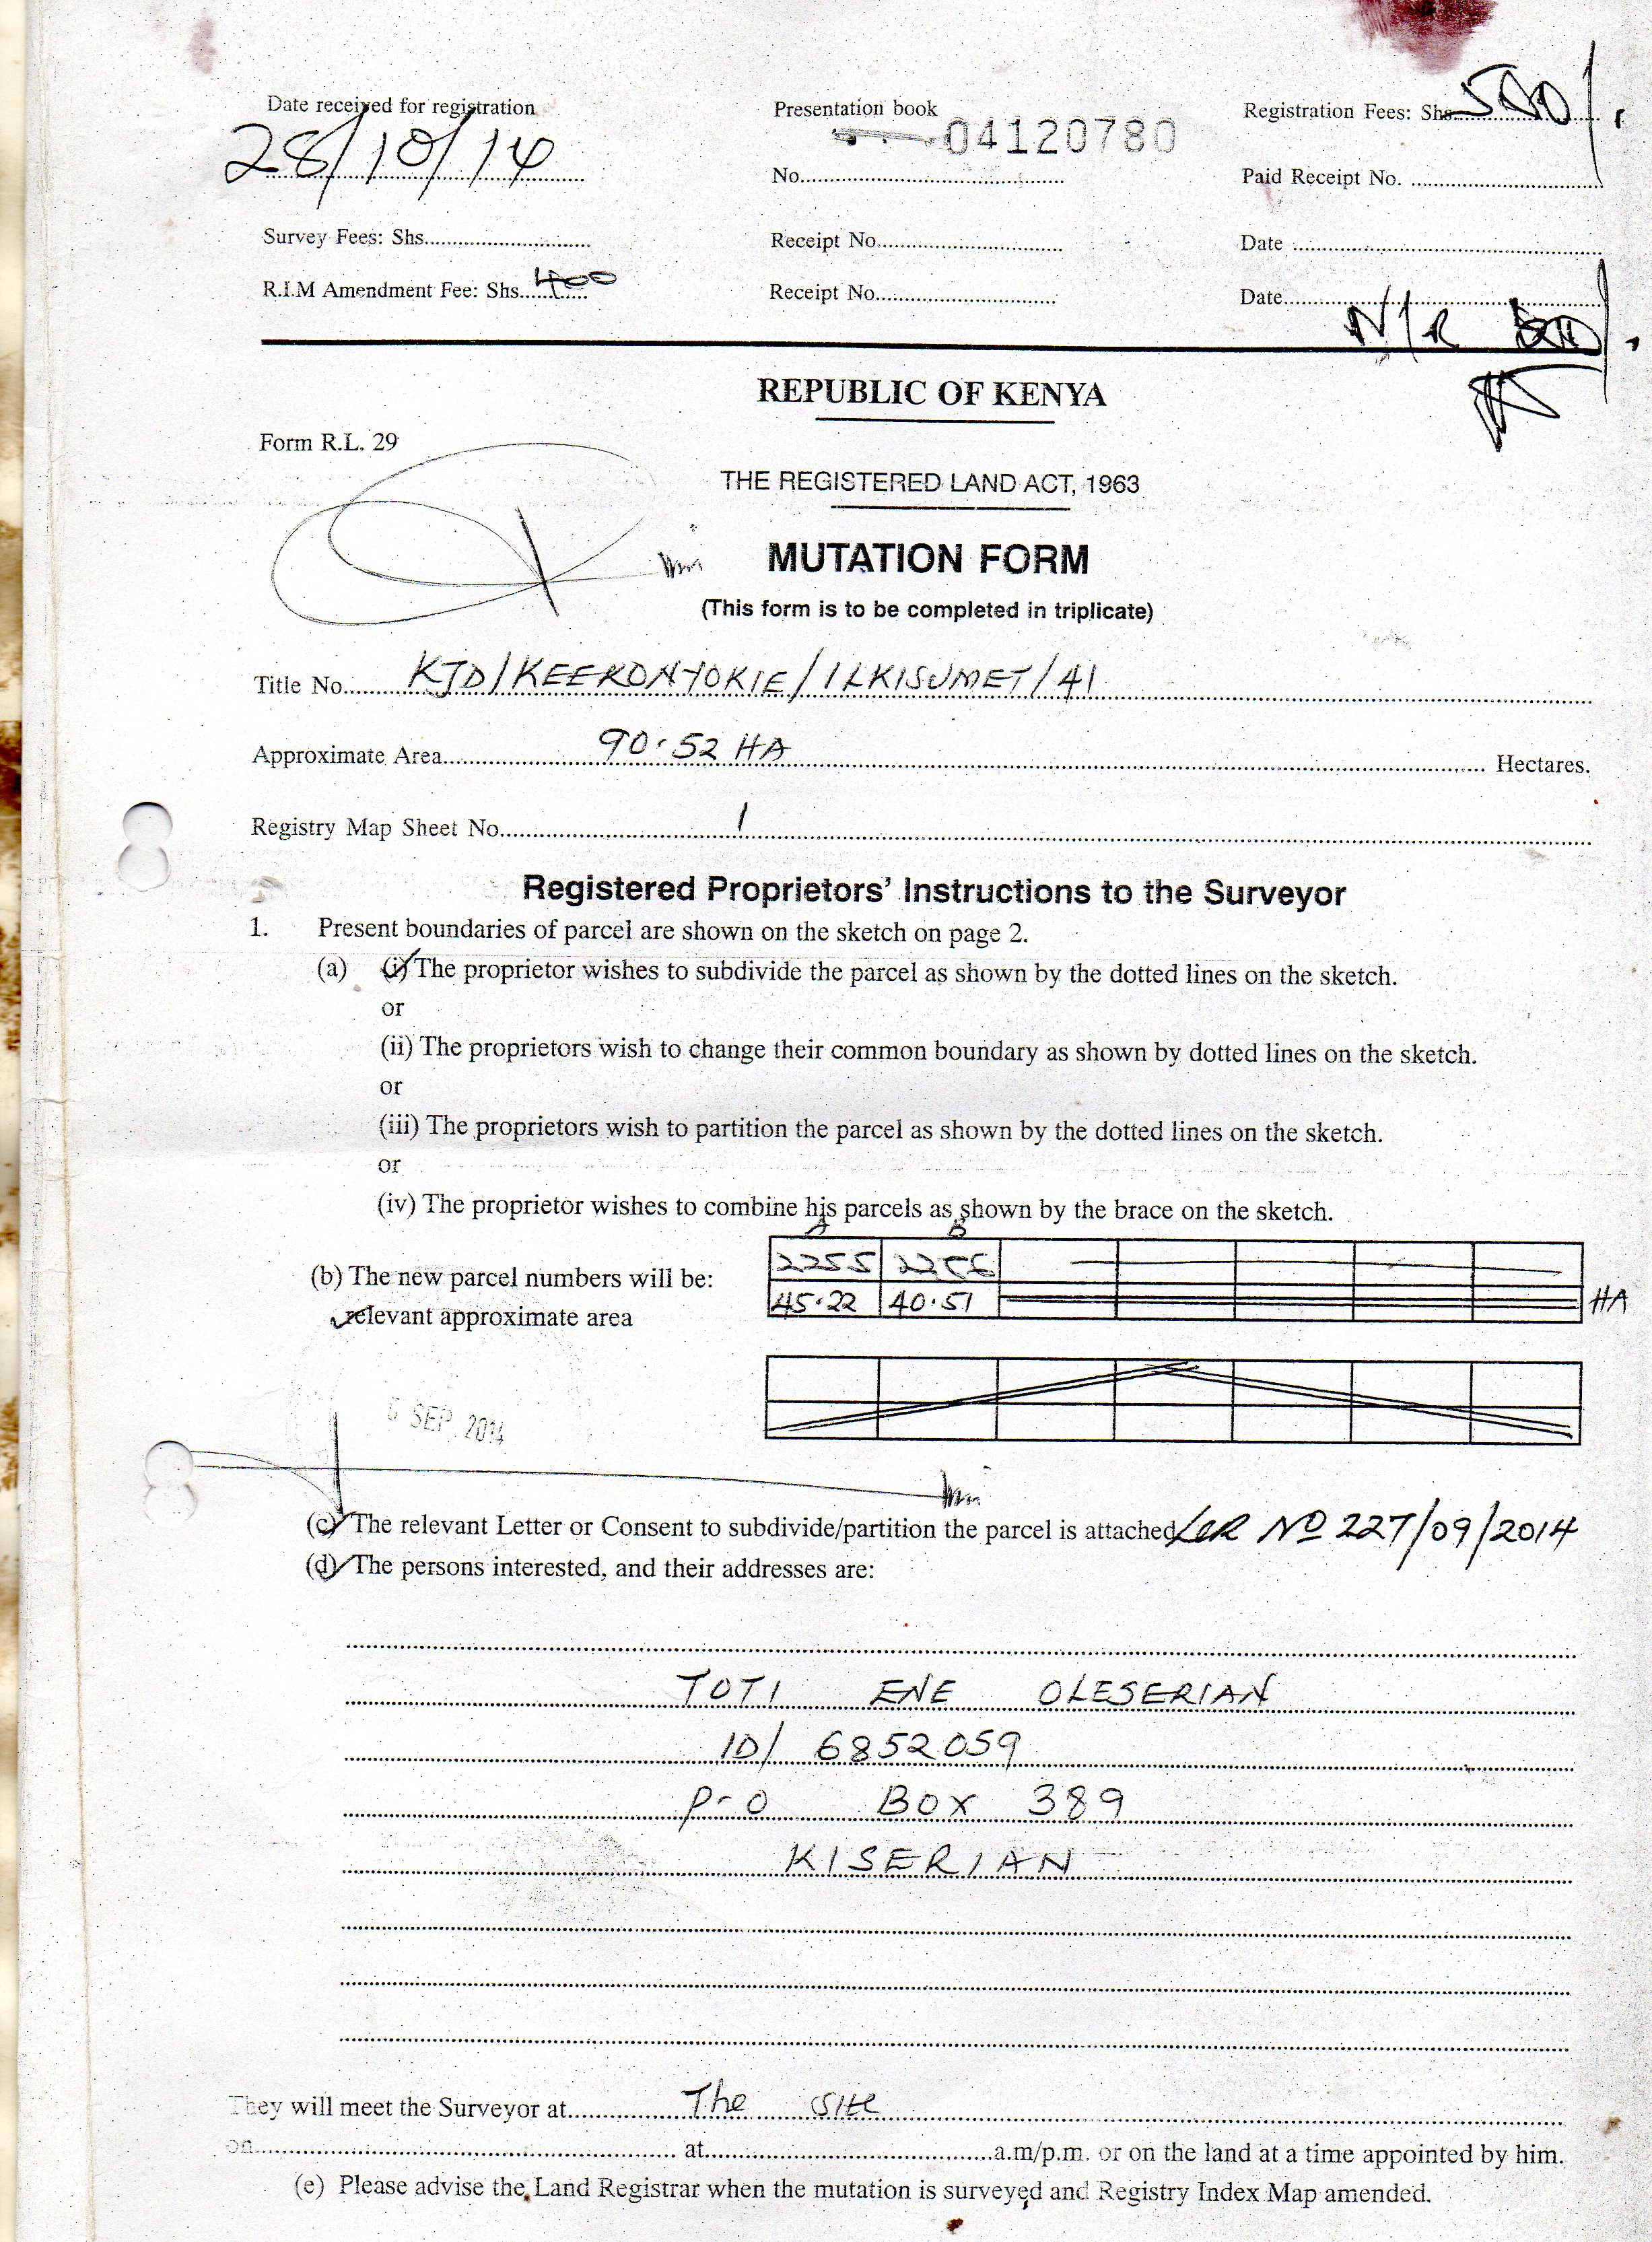 Date received for registration
28/10/14
Presentation book
04120780
No.
Registration Fees: Shs 500/.
Paid Receipt No.
Survey Fees: Shs.
Receipt No.
Date
R.I.M Amendment Fee: Shs. 400
Receipt No.
Date
N/R
REPUBLIC OF KENYA
Form R.L. 29
THE REGISTERED LAND ACT, 1963
MUTATION FORM
(This form is to be completed in triplicate)
Title No. KJD/KEEKONYOKIE/ILKISUMET/41
Approximate Area 90.52 HA Hectares.
Registry Map Sheet No. 1
Registered Proprietors' Instructions to the Surveyor
1. Present boundaries of parcel are shown on the sketch on page 2.
(a) (i) The proprietor wishes to subdivide the parcel as shown by the dotted lines on the sketch.
or
(ii) The proprietors wish to change their common boundary as shown by dotted lines on the sketch.
or
(iii) The proprietors wish to partition the parcel as shown by the dotted lines on the sketch.
or
(iv) The proprietor wishes to combine his parcels as shown by the brace on the sketch.
A B
(b) The new parcel numbers will be: 2255 2256
relevant approximate area 45.22 40.51 HA
SEP 2014
(c) The relevant Letter or Consent to subdivide/partition the parcel is attached LCR NO 227/09/2014
(d) The persons interested, and their addresses are:
TOTI ENE OLESERIAN
ID/ 6852059
P-O BOX 389
KISERIAN
They will meet the Surveyor at The site
on at a.m/p.m. or on the land at a time appointed by him.
(e) Please advise the Land Registrar when the mutation is surveyed and Registry Index Map amended.